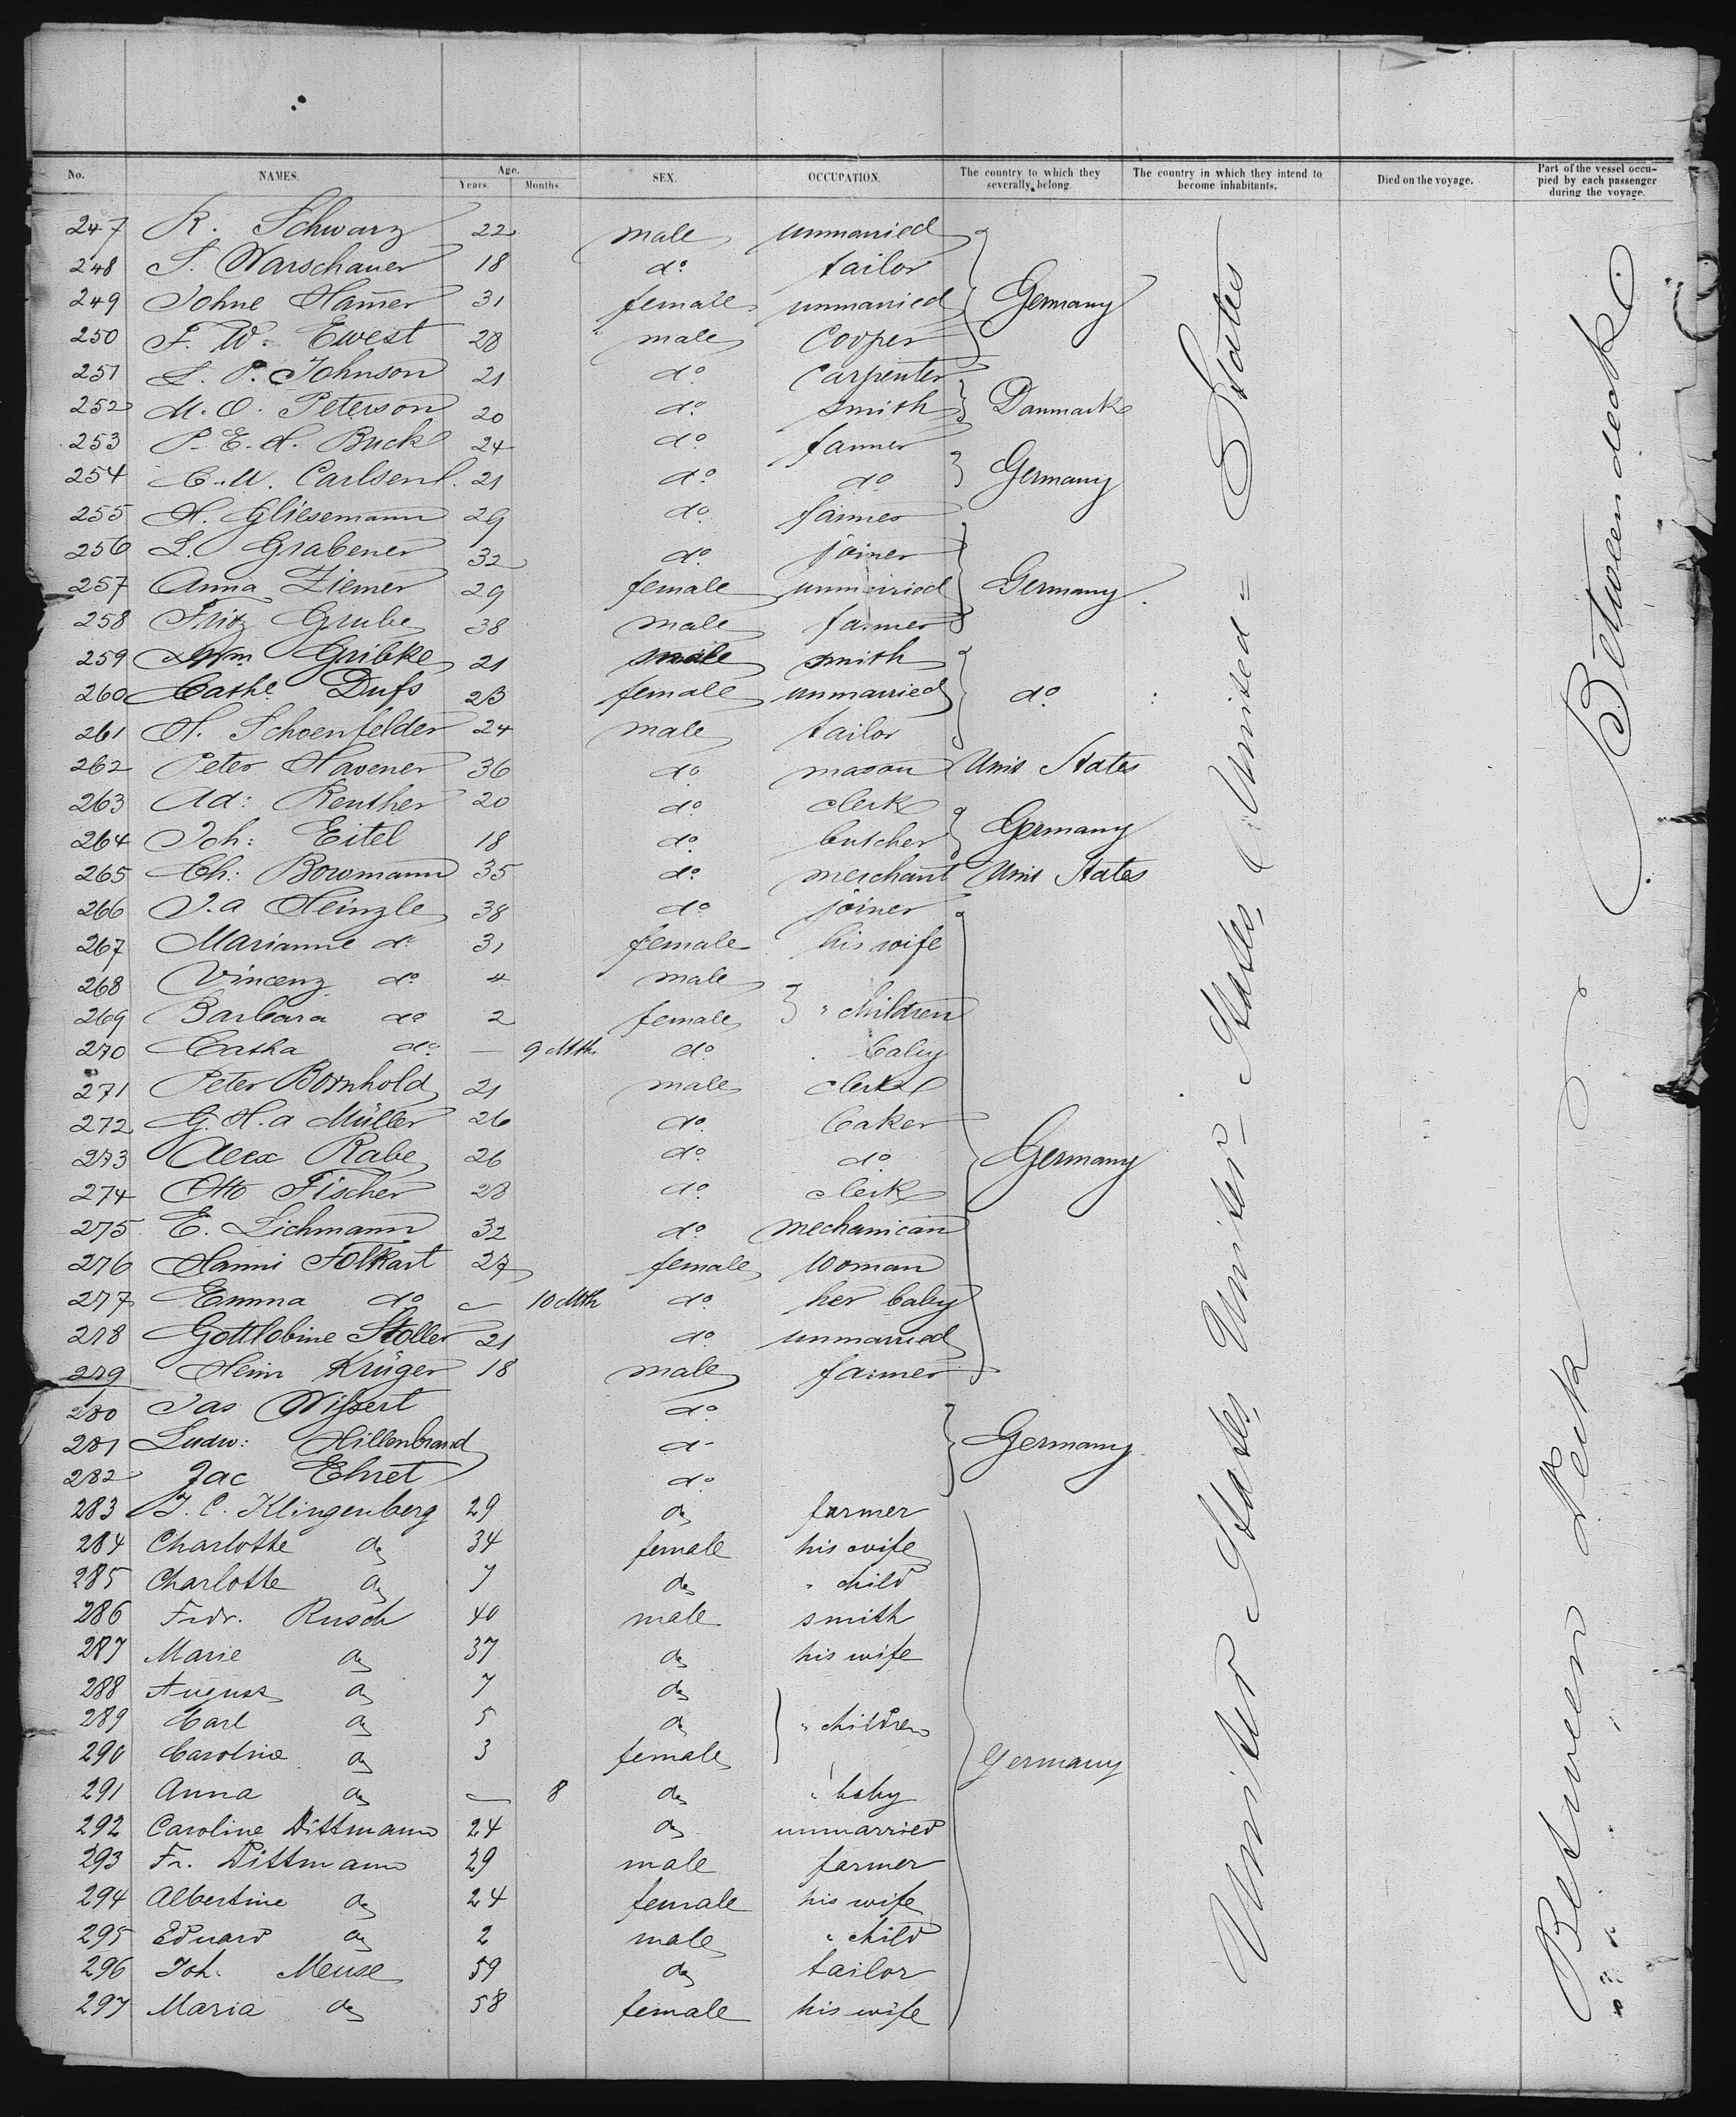 No. NAMES. Age. Years. Months. SEX. OCCUPATION. The country to which they severally belong. The country in which they intend to become inhabitants. Died on the voyage. Part of the vessel occupied by each passenger during the voyage.
247 R. Schwarz 22 male unmarried
248 S. Warschauer 18 do tailor
249 Johne Hamer 31 female unmarried Germany
250 F. W. Ewest 28 male Cooper
251 L. P. Johnson 21 do Carpenter
252 M. O. Peterson 20 do smith Danmark
253 P. E. H. Buck 24 do farmer
254 C. W. Carlsen 21 do do Germany
255 H. Gliesemann 29 do farmer
256 L. Grabener 32 do joiner
257 Anna Ziemer 29 female unmarried Germany.
258 Fritz Grube 38 male farmer
259 Wm Gribke 21 male smith
260 Cathe Dufs 23 female unmarried do
261 H. Schoenfelder 24 male tailor
262 Peter Havener 36 do mason Unit States
263 Ad: Reuther 20 do clerk
264 Joh: Eitel 18 do butcher Germany
265 Ch: Bowmann 35 do merchant Unit States
266 J. a Heinzle 38 do joiner
267 Marianne do 31 female his wife
268 Vincenz do 4 male
269 Barbara do 2 female " children
270 Catha do — 9 Mth do baby
271 Peter Bornhold 21 male clerk
272 G. H. a Müller 26 do baker
273 Alex Rabe 26 do do Germany
274 Otto Fischer 28 do clerk
275 E. Lichmann 32 do mechanican
276 Hanni Folkart 27 female Woman
277 Emma do — 10 Mth do her baby
278 Gottlobine Stoller 21 do unmarried
279 Heinr Krüger 18 male farmer
280 Jas Wissert do
281 Ludw: Hillenbrand do Germany
282 Jac Ehret do
283 J. C. Klingenberg 29 do farmer
284 Charlotte do 34 female his wife
285 Charlotte do 7 do " child
286 Frdr. Rusch 40 male smith
287 Marie do 37 do his wife
288 August do 7 do
289 Carl do 5 do " children
290 Caroline do 3 female Germany
291 Anna do — 8 do " baby
292 Caroline Dittmann 24 do unmarried
293 Fr. Dittmann 29 male farmer
294 Albertine do 24 female his wife
295 Eduard do 2 male " child
296 Joh. Meuse 59 do tailor
297 Maria do 58 female his wife
United States, United States, United = States
Between Deck Between deck